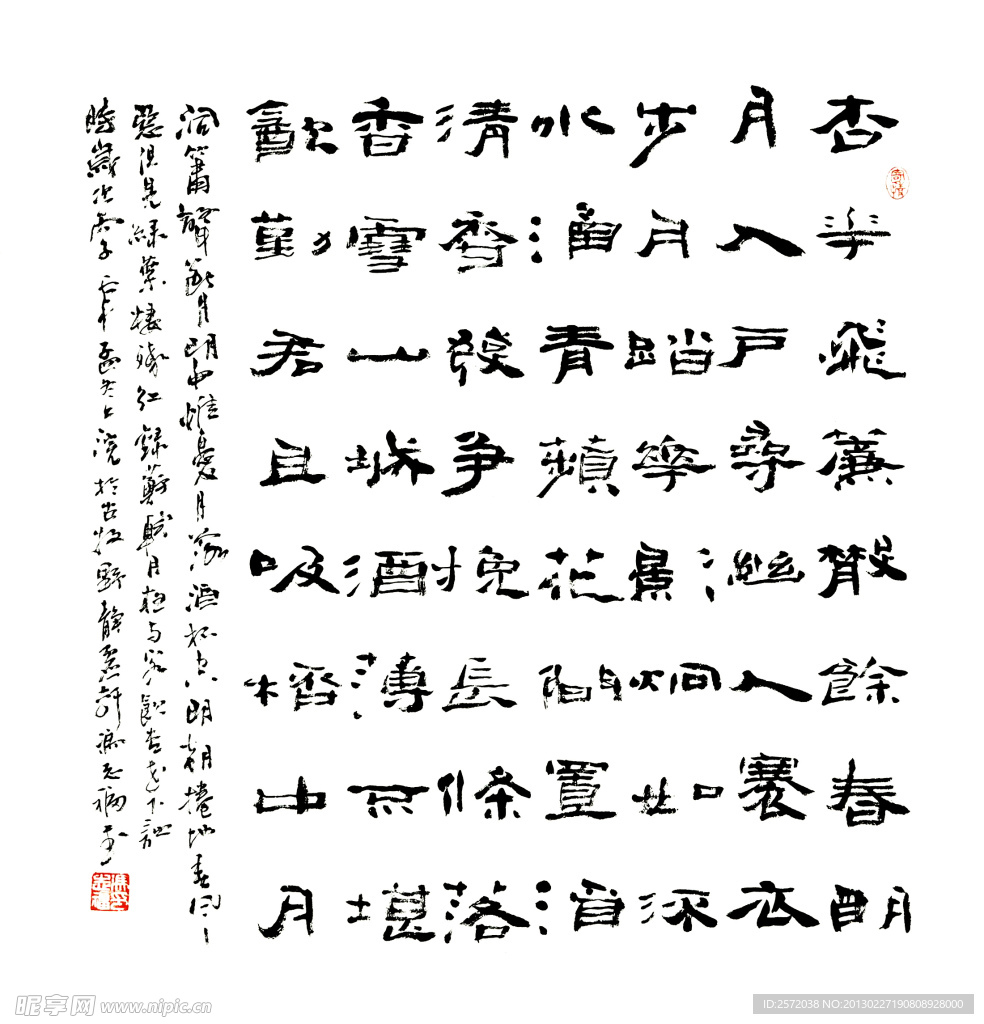 杏華飛簾散餘春明
月入戶尋幽人褰衣
步月踏華影炯如流
水涵青蘋花間置酒
清香發爭挽長條落
香雪山城酒薄不堪
飲勸君且吸桮中月
洞簫聲斷月明中惟憂月落酒杯空明朝捲地春風
惡但見綠葉棲殘紅錄蘇軾月夜与客飲杏花下
時歲次
昵享网 www.nipic.cn
ID:2572038 NO:20130227190808928000